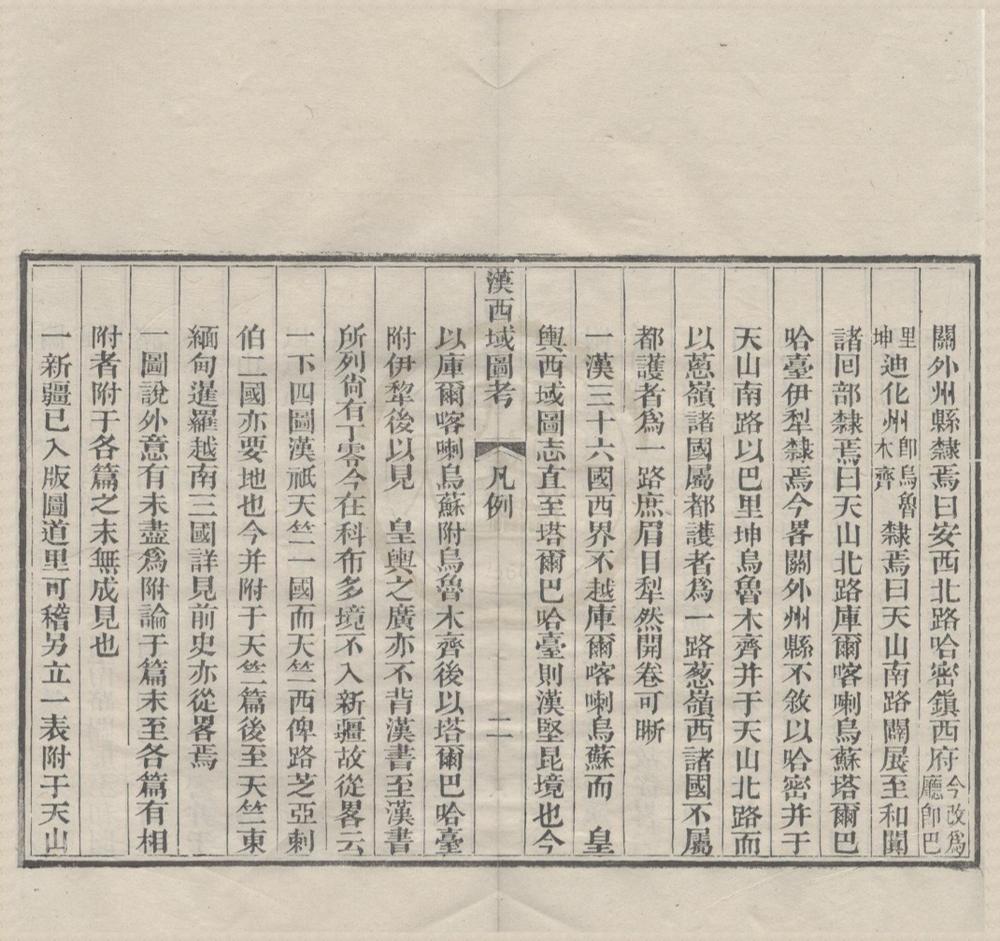 關外州縣隸焉曰安西北路哈密鎭西府今改爲廳卽巴
里坤迪化州卽烏魯木齊隸焉曰天山南路闢展至和闐
諸回部隸焉曰天山北路庫爾喀喇烏蘇塔爾巴
哈臺伊犁隸焉今畧關外州縣不敘以哈密并于
天山南路以巴里坤烏魯木齊并于天山北路而
以蔥嶺諸國屬都護者爲一路葱嶺西諸國不屬
都護者爲一路庶眉目犁然開卷可晰
一漢三十六國西界不越庫爾喀喇烏蘇而　皇
輿西域圖志直至塔爾巴哈臺則漢堅昆境也今
漢西域圖考　凡例　二
以庫爾喀喇烏蘇附烏魯木齊後以塔爾巴哈臺
附伊犂後以見　皇輿之廣亦不背漢書至漢書
所列尙有丁零今在科布多境不入新疆故從畧云
一下四圖漢祇天竺一國而天竺西俾路芝亞剌
伯二國亦要地也今并附于天竺篇後至天竺東
緬甸暹羅越南三國詳見前史亦從畧焉
一圖說外意有未盡爲附論于篇末至各篇有相
附者附于各篇之末無成見也
一新疆已入版圖道里可稽另立一表附于天山